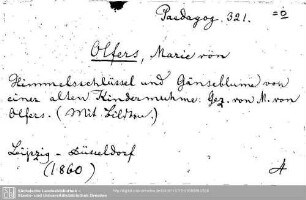 Paedagog. 321. =0
Olfers, Marie von
Himmelsschlüssel und Gänseblume von
einer alten Kindermuhme. Gez. von M. von
Olfers. (Mit Lithrn.)
Leipzig - Düsseldorf
(1860) A
Sächsische Landesbibliothek -
Staats- und Universitätsbibliothek Dresden